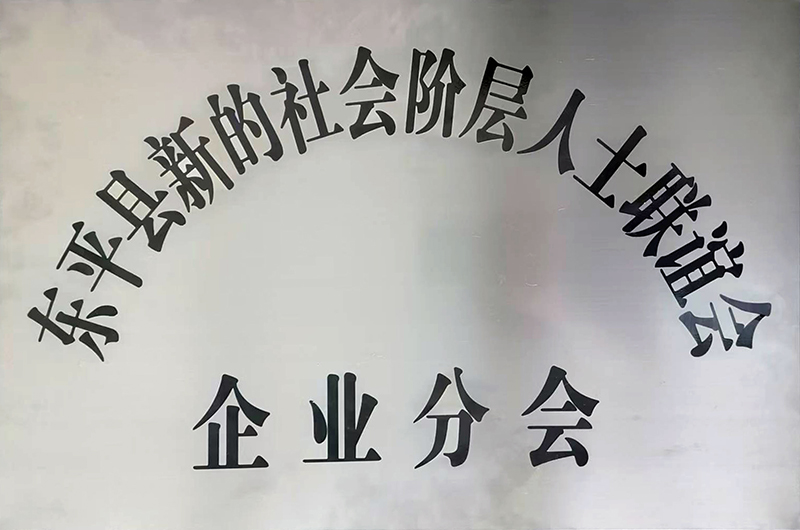 东平县新的社会阶层人士联谊会
企业分会